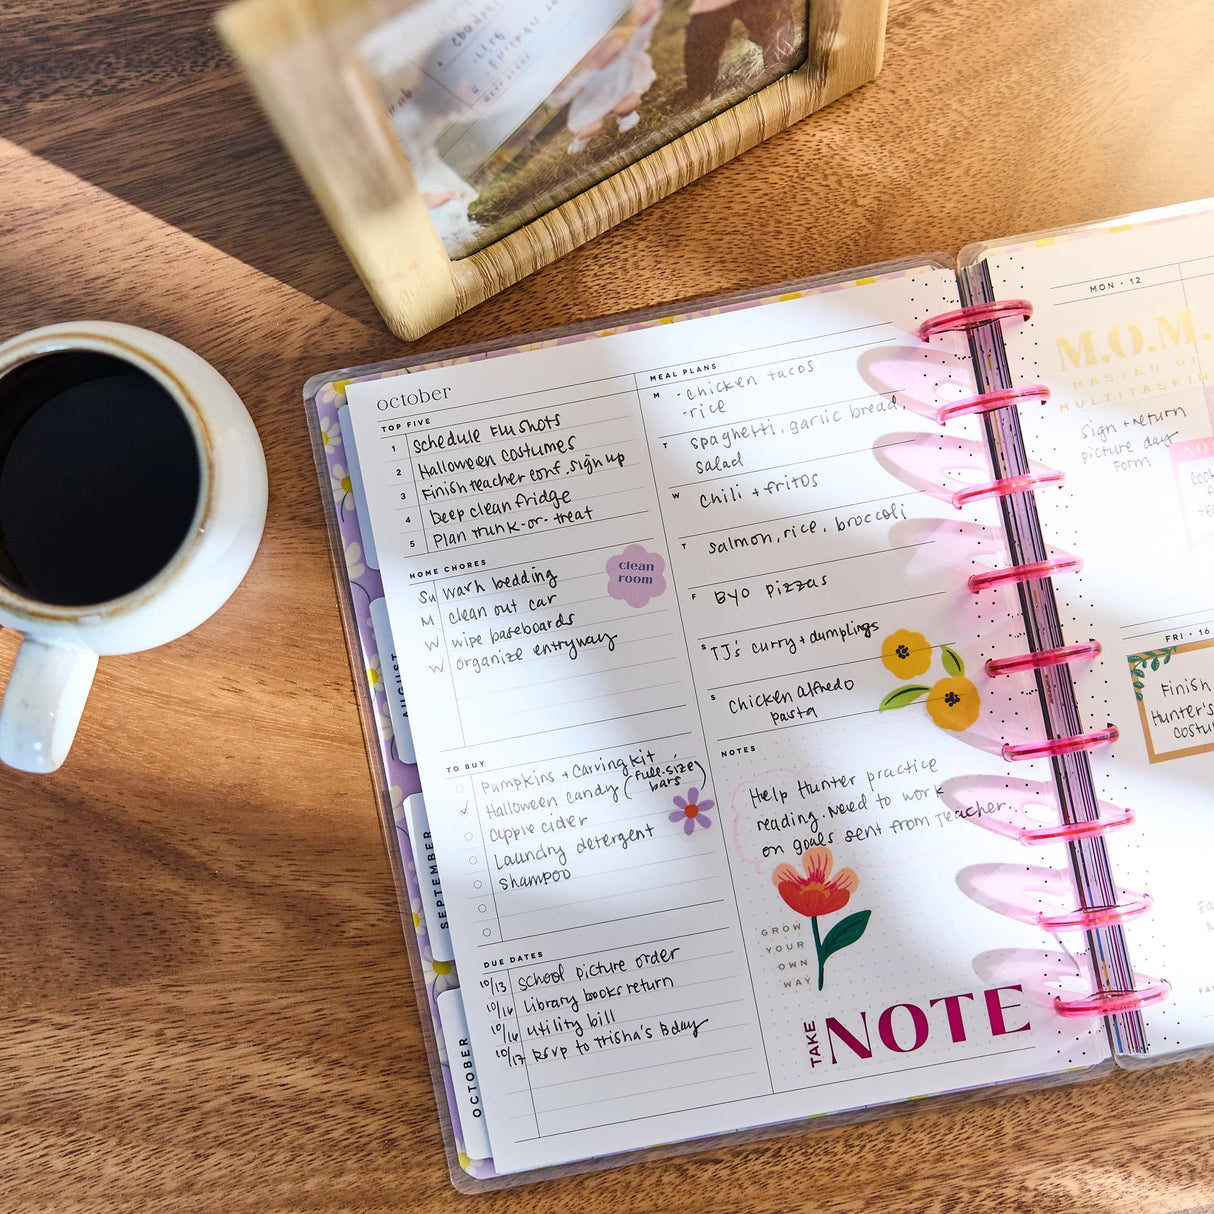 october
TOP FIVE
1 Schedule Flu shots
2 Halloween costumes
3 Finish teacher conf. sign up
4 Deep clean fridge
5 Plan trunk-or-treat
HOME CHORES
Su wash bedding
M clean out car
W wipe baseboards
W organize entryway
clean
room
TO BUY
Pumpkins + Carving kit
✓ Halloween candy (full-size
bars)
apple cider
Laundry detergent
Shampoo
DUE DATES
10/13 School picture order
10/16 Library books return
10/16 Utility bill
10/17 RSVP to Trisha's Bday
MEAL PLANS
M - chicken tacos
- rice
T spaghetti, garlic bread,
salad
W Chili + fritos
T Salmon, rice, broccoli
F BYO pizzas
S TJ's curry + dumplings
S Chicken alfredo
pasta
NOTES
Help Hunter practice
reading. Need to work
on goals sent from Teacher.
GROW
YOUR
OWN
WAY
TAKE
NOTE
AUGUST
SEPTEMBER
OCTOBER
MON • 12
M.O.M.
MASTER OF
MULTITASKIN
sign + return
picture day
Form
NO
FRI • 16
Finish
Hunter's
costu